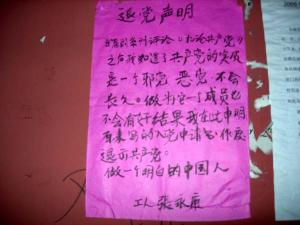 退党声明
自看到系列评论《九评共产党》
之后我知道了共产党的发展
是一个邪党 恶党 不会
长久。做为它一个成员也
不会有好结果 我在此申明
原来写的入党申请书作废
退出共产党。
做一个明白的中国人
工人 张永康
2006